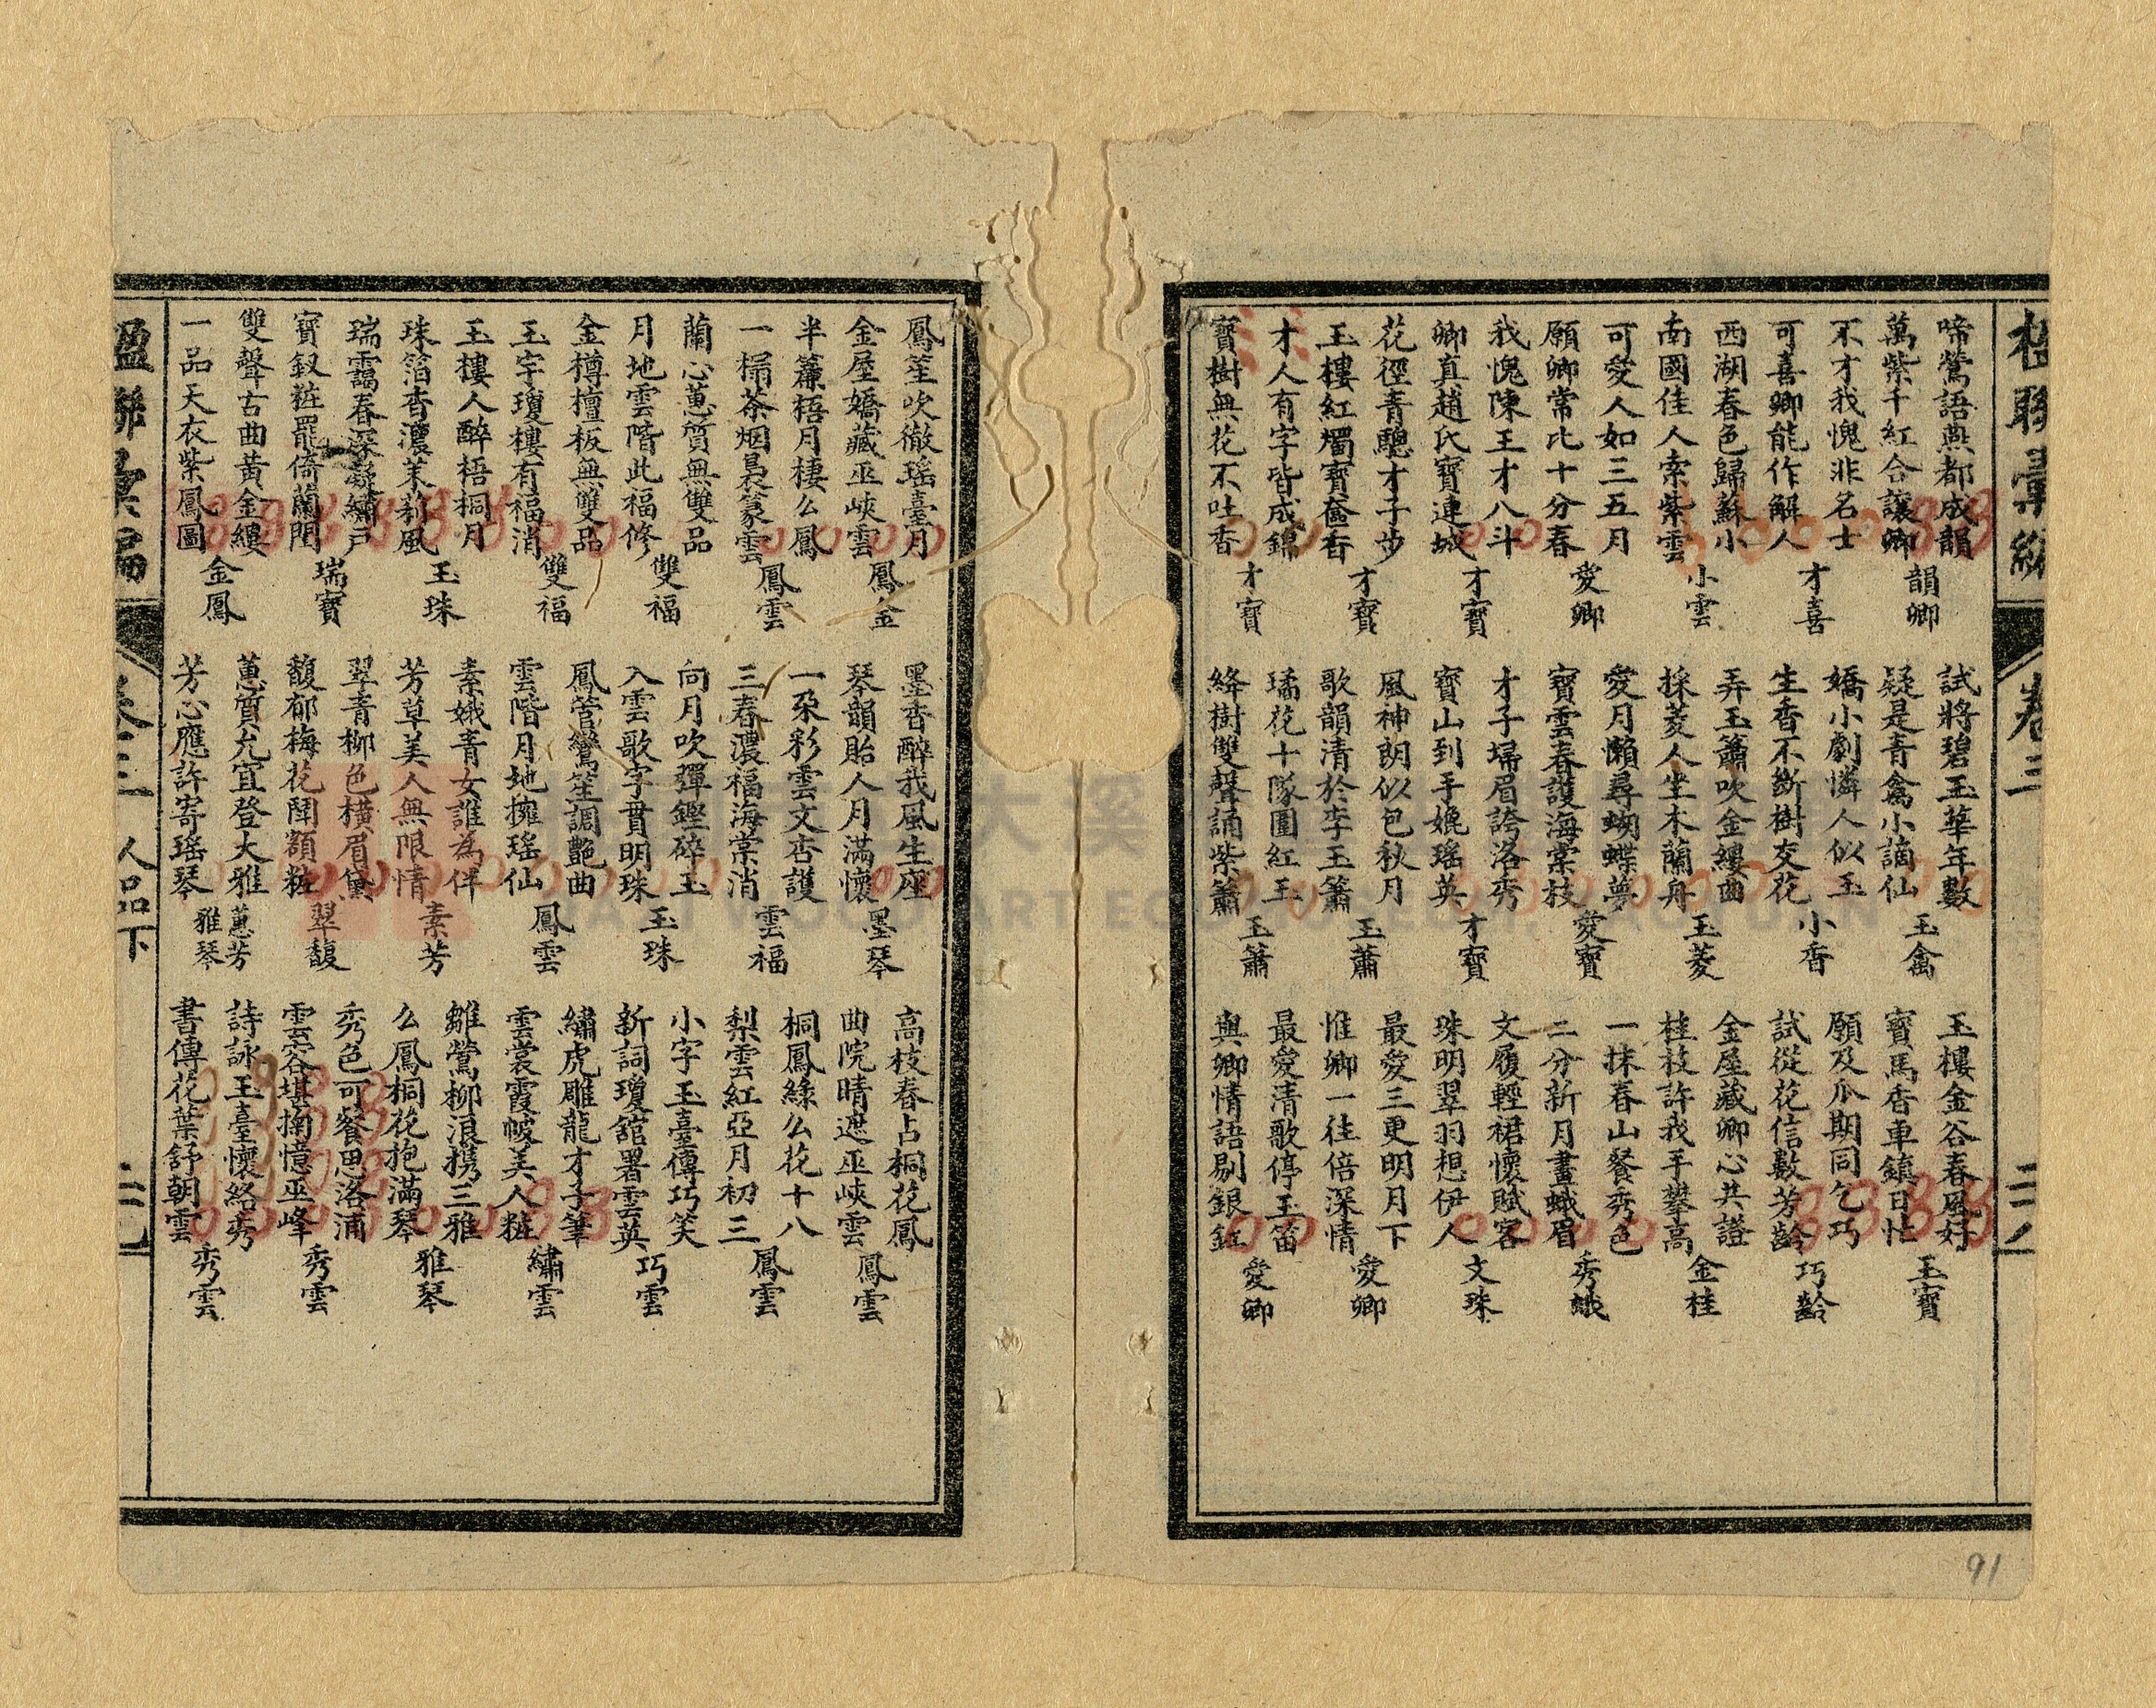 楹聯彙編 卷三 二八
啼鶯語燕都成韻
萬紫千紅合讓卿
韻卿
不才我愧非名士
可喜卿能作解人
才喜
西湖春色歸蘇小
南國佳人索紫雲
小雲
可愛人如三五月
願卿常比十分春
愛卿
我愧陳王才八斗
卿真趙氏寶連城
才寶
花徑青驄才子步
玉樓紅燭寶奩香
才寶
才人有字皆成錦
寶樹無花不吐香
才寶
試將碧玉華年數
疑是青禽小謫仙
玉禽
嬌小劇憐人似玉
生香不斷樹交花
小香
弄玉簫吹金縷曲
採菱人坐木蘭舟
玉菱
愛月懶尋蝴蝶夢
寶雲春護海棠枝
愛寶
才子埽眉誇洛秀
寶山到手媲瑤英
才寶
風神朗似包秋月
歌韻清於李玉簫
玉蕭
璚花十隊圍紅玉
絳樹雙聲誦紫簫
玉簫
玉樓金谷春風好
寶馬香車鎮日忙
玉寶
願及瓜期同乞巧
試從花信數芳齡
巧齡
金屋藏卿心共證
桂枝許我手攀高
金桂
一抹春山餐秀色
二分新月畫蛾眉
秀蛾
文履輕裙懷賦客
珠明翠羽想伊人
文珠
最愛三更明月下
惟卿一往倍深情
愛卿
最愛清歌停玉笛
與卿情語剔銀釭
愛卿
鳳笙吹徹瑤臺月
金屋嬌藏巫峽雲
鳳金
半簾梧月棲么鳳
一榻茶烟裊篆雲
鳳雲
蘭心蕙質無雙品
月地雲階此福修
雙福
金樽檀板無雙品
玉宇瓊樓有福消
雙福
玉樓人醉梧桐月
珠箔香濃茉莉風
玉珠
瑞靄春深凝繡戶
寶釵粧罷倚蘭閨
瑞寶
雙聲古曲黃金縷
一品天衣紫鳳圖
金鳳
墨香醉我風生座
琴韻貽人月滿懷
墨琴
一朶彩雲文杏護
三春濃福海棠消
雲福
向月吹彈鏗碎玉
入雲歌字貫明珠
玉珠
鳳管鸞笙調艷曲
雲階月地擁瑤仙
鳳雲
素娥青女誰為伴
芳草美人無限情
素芳
翠青柳色橫眉黛
馥郁梅花鬪額粧
翠馥
蕙質允宜登大雅
芳心應許寄瑤琴
蕙芳
雅琴
高枝春占桐花鳳
曲院晴遮巫峽雲
鳳雲
桐鳳綠么花十八
梨雲紅亞月初三
鳳雲
小字玉臺傳巧笑
新詞瓊館署雲英
巧雲
繡虎雕龍才子筆
雲裳霞帔美人粧
繡雲
雛鶯柳浪攜三雅
么鳳桐花抱滿琴
雅琴
秀色可餐思洛浦
雲容堪擬憶巫峰
秀雲
詩詠玉臺懷絡秀
書傳花葉舒朝雲
秀雲
楹聯彙編 卷三 人品下 二九
91